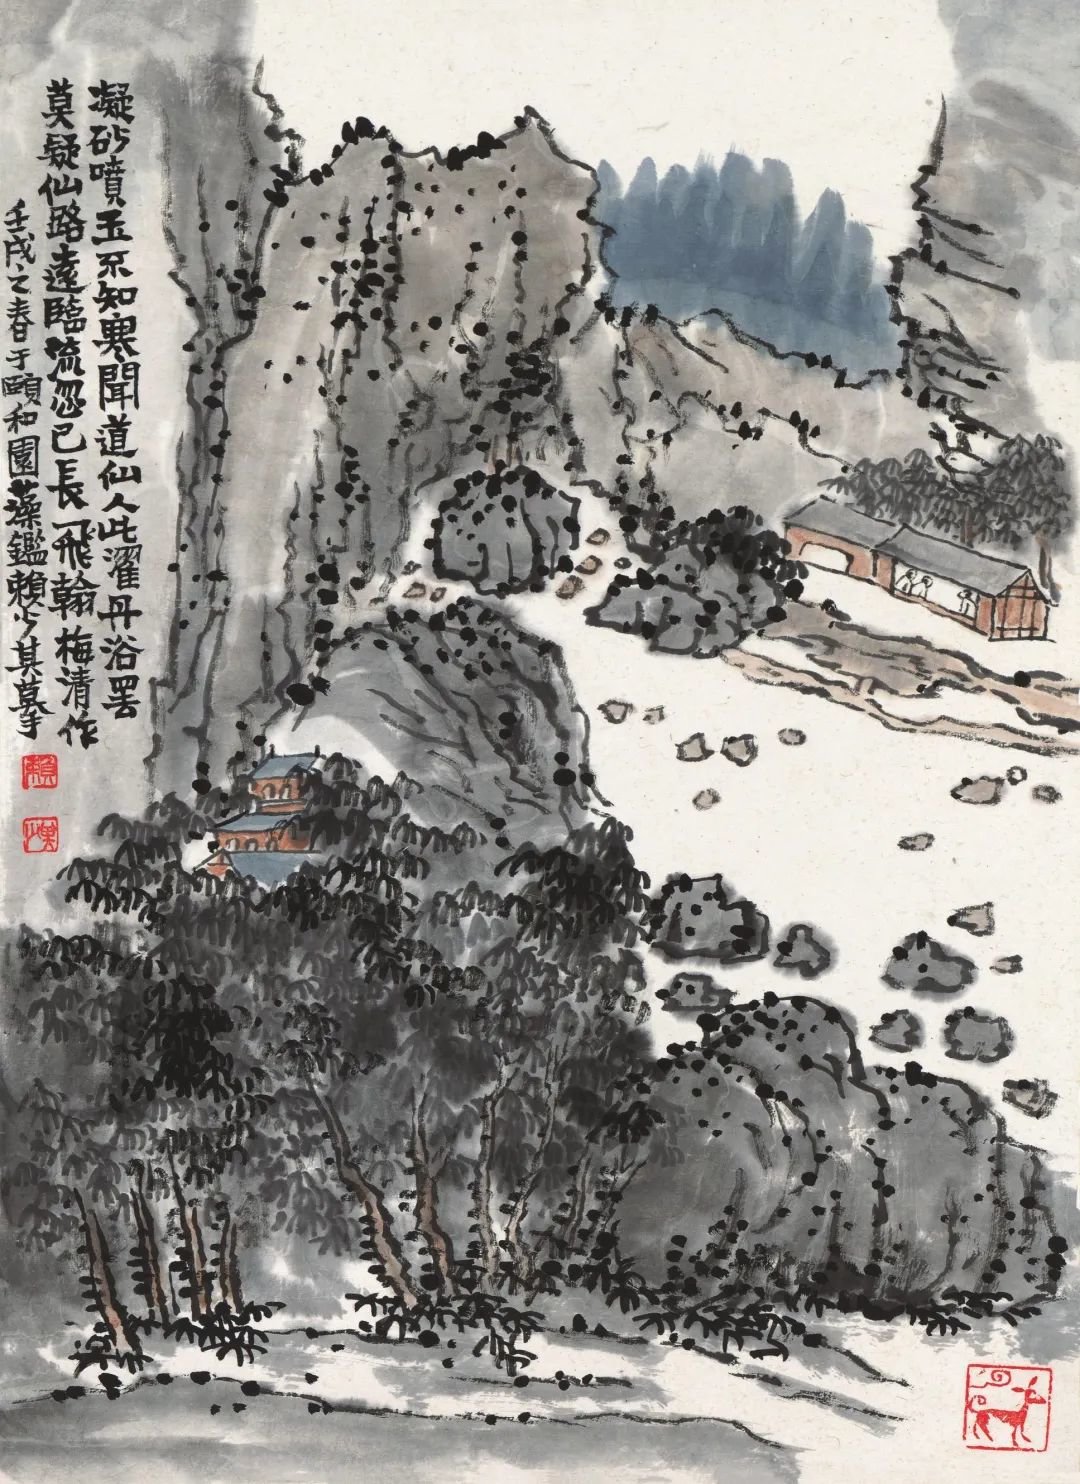 凝砂噴玉不知寒聞道仙人此濯丹浴罷
莫疑仙路遠臨流忽已長飛翰梅清作
壬戌之春于頤和園藻鑑賴少其摹